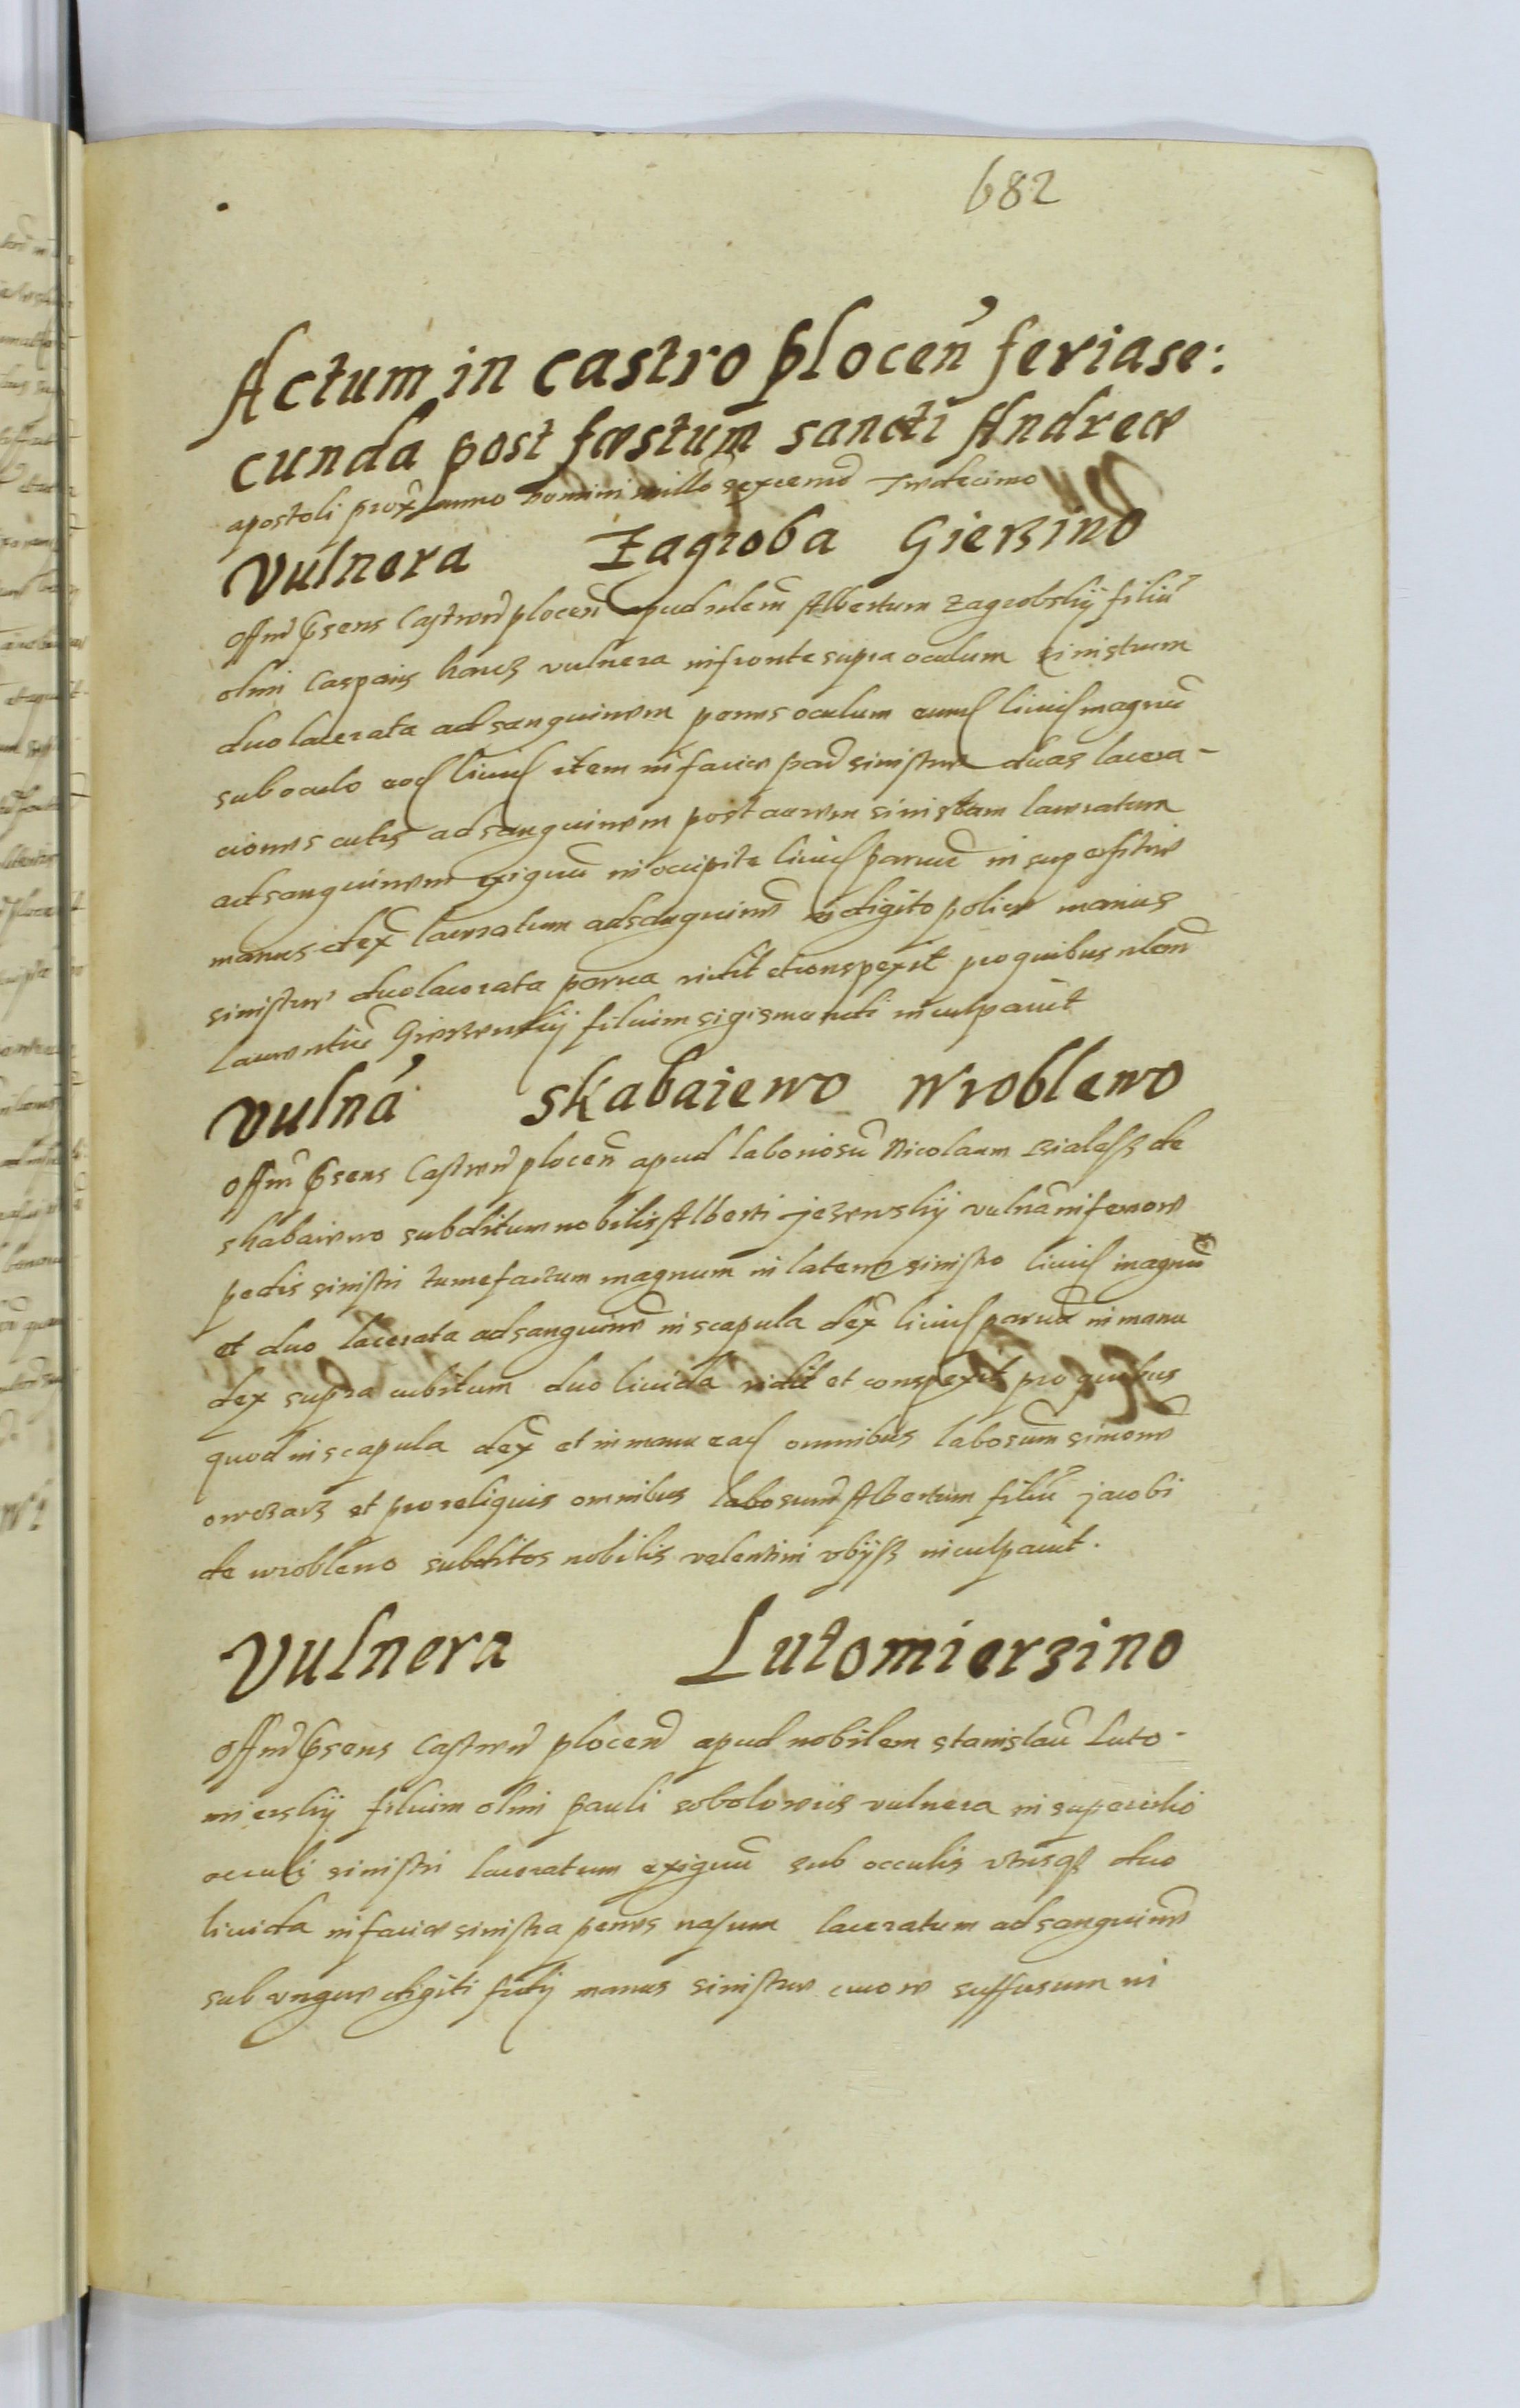 682
Actum in castro plocen̄ feriase:
cunda post fæstum sancti Andreæ
apostoli prox̄ anno domini millō sexcenmō Tredecimo
Vulnera Zagroba Gierzino
Offm̄ p̄sens Castren̄ plocen̄ apud nlem̄ Albertum Zagrobskÿ filiū
olim Casparis vulnera in fronte supra oculum sinistrum
duo lacerata ad sanguinem penes oculum eund liuid magnū
sub oculo eod liuid item in facie par sinistre duas lacera-
ciones cutis ad sanguinem post aurem sinistram laceratum
ad sanguinem exiguū in occipite liuid paruū in superficie
manus dex̄ laceratum ad sanguinē in digito police manus
sinistre duo lacerata parua vidit et conspexit pro quibus nlem̄
Laurentiū filium sigismundi inculpauit
Vulnā skabaiewo wroblewo
Offm̄ p̄sens Castren̄ plocen̄ apud laboriosū Nicolaum de
skabaiewo subditum nobilis Alberti vulnā in femore
pedis sinistri tumefactum magnum in latere sinistro liuid magnū
et duo lacerata ad sanguinē in scapula dex̄ liuid paruū in manu
dex supra cubitum duo liuida vidit et conspexit pro quibus
quod in scapula dex̄ et in manu ead omnibus labosum̄ simonē
owczarz et pro reliquis omnibus labosum̄ Albertum filiū jacobi
de wroblewo subditos nobilis valentini inculpauit.
Vulnera Lutomierzino
Offm̄ p̄sens Castren̄ plocen̄ apud nobilem stanislaū Luto-
mierskÿ filium olim pauli vulnera in supercilio
occuli sinistri laceratum exiguū sub occulis duo
liuida in facie sinistra penes nasum laceratum ad sanguinē
sub vngue digiti manus sinistre cruore suffusum in